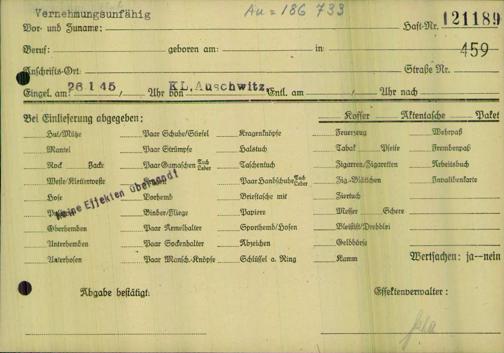 Vernehmungsunfähig Au = 186 733
Vor- und Zuname: Haft-Nr. 121189
Beruf: geboren am: in 459
Anschrifts-Ort: Straße Nr.
Eingel. am: 26.1.45 / Uhr von KL. Auschwitz, Entl. am: / Uhr nach
Bei Einlieferung abgegeben: Koffer Aktentasche Paket
Hut/Mütze Paar Schuhe/Stiefel Kragenknöpfe Feuerzeug Wehrpaß
Mantel Paar Strümpfe Halstuch Tabak Pfeife Fremdenpaß
Rock Jacke Paar Gamaschen Tuch Leder Taschentuch Zigarren/Zigaretten Arbeitsbuch
Weste/Kletterweste Paar Handschuhe Tuch Leder Zig.-Blättchen Invalidenkarte
Hose Vorhemd Brieftasche mit Ziertuch
keine Effekten übersandt
Binder/Fliege Papiere Messer Schere
Oberhemden Paar Ärmelhalter Sporthemd/Hosen Bleistift/Drehblei
Unterhemden Paar Sockenhalter Abzeichen Geldbörse
Unterhosen Paar Mansch.-Knöpfe Schlüssel a. Ring Kamm Wertsachen: ja—nein
Abgabe bestätigt: Effektenverwalter: